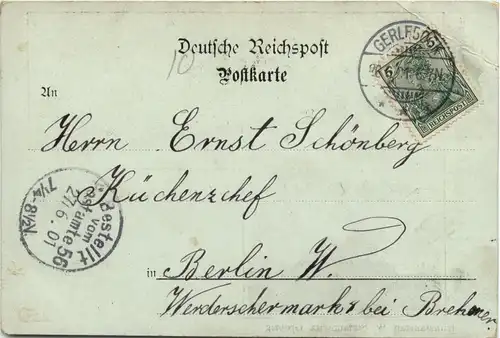 Deutsche Reichspost
Postkarte
10
GERLEBOGK
26 6 01
REICHSPOST
An
Herrn Ernst Schönberg
Küchenzchef
in Berlin W.
Werderschermarkt bei Brehmer
Bestellt
vom
Postamte 56
27/6. 01
7¼-8½V.